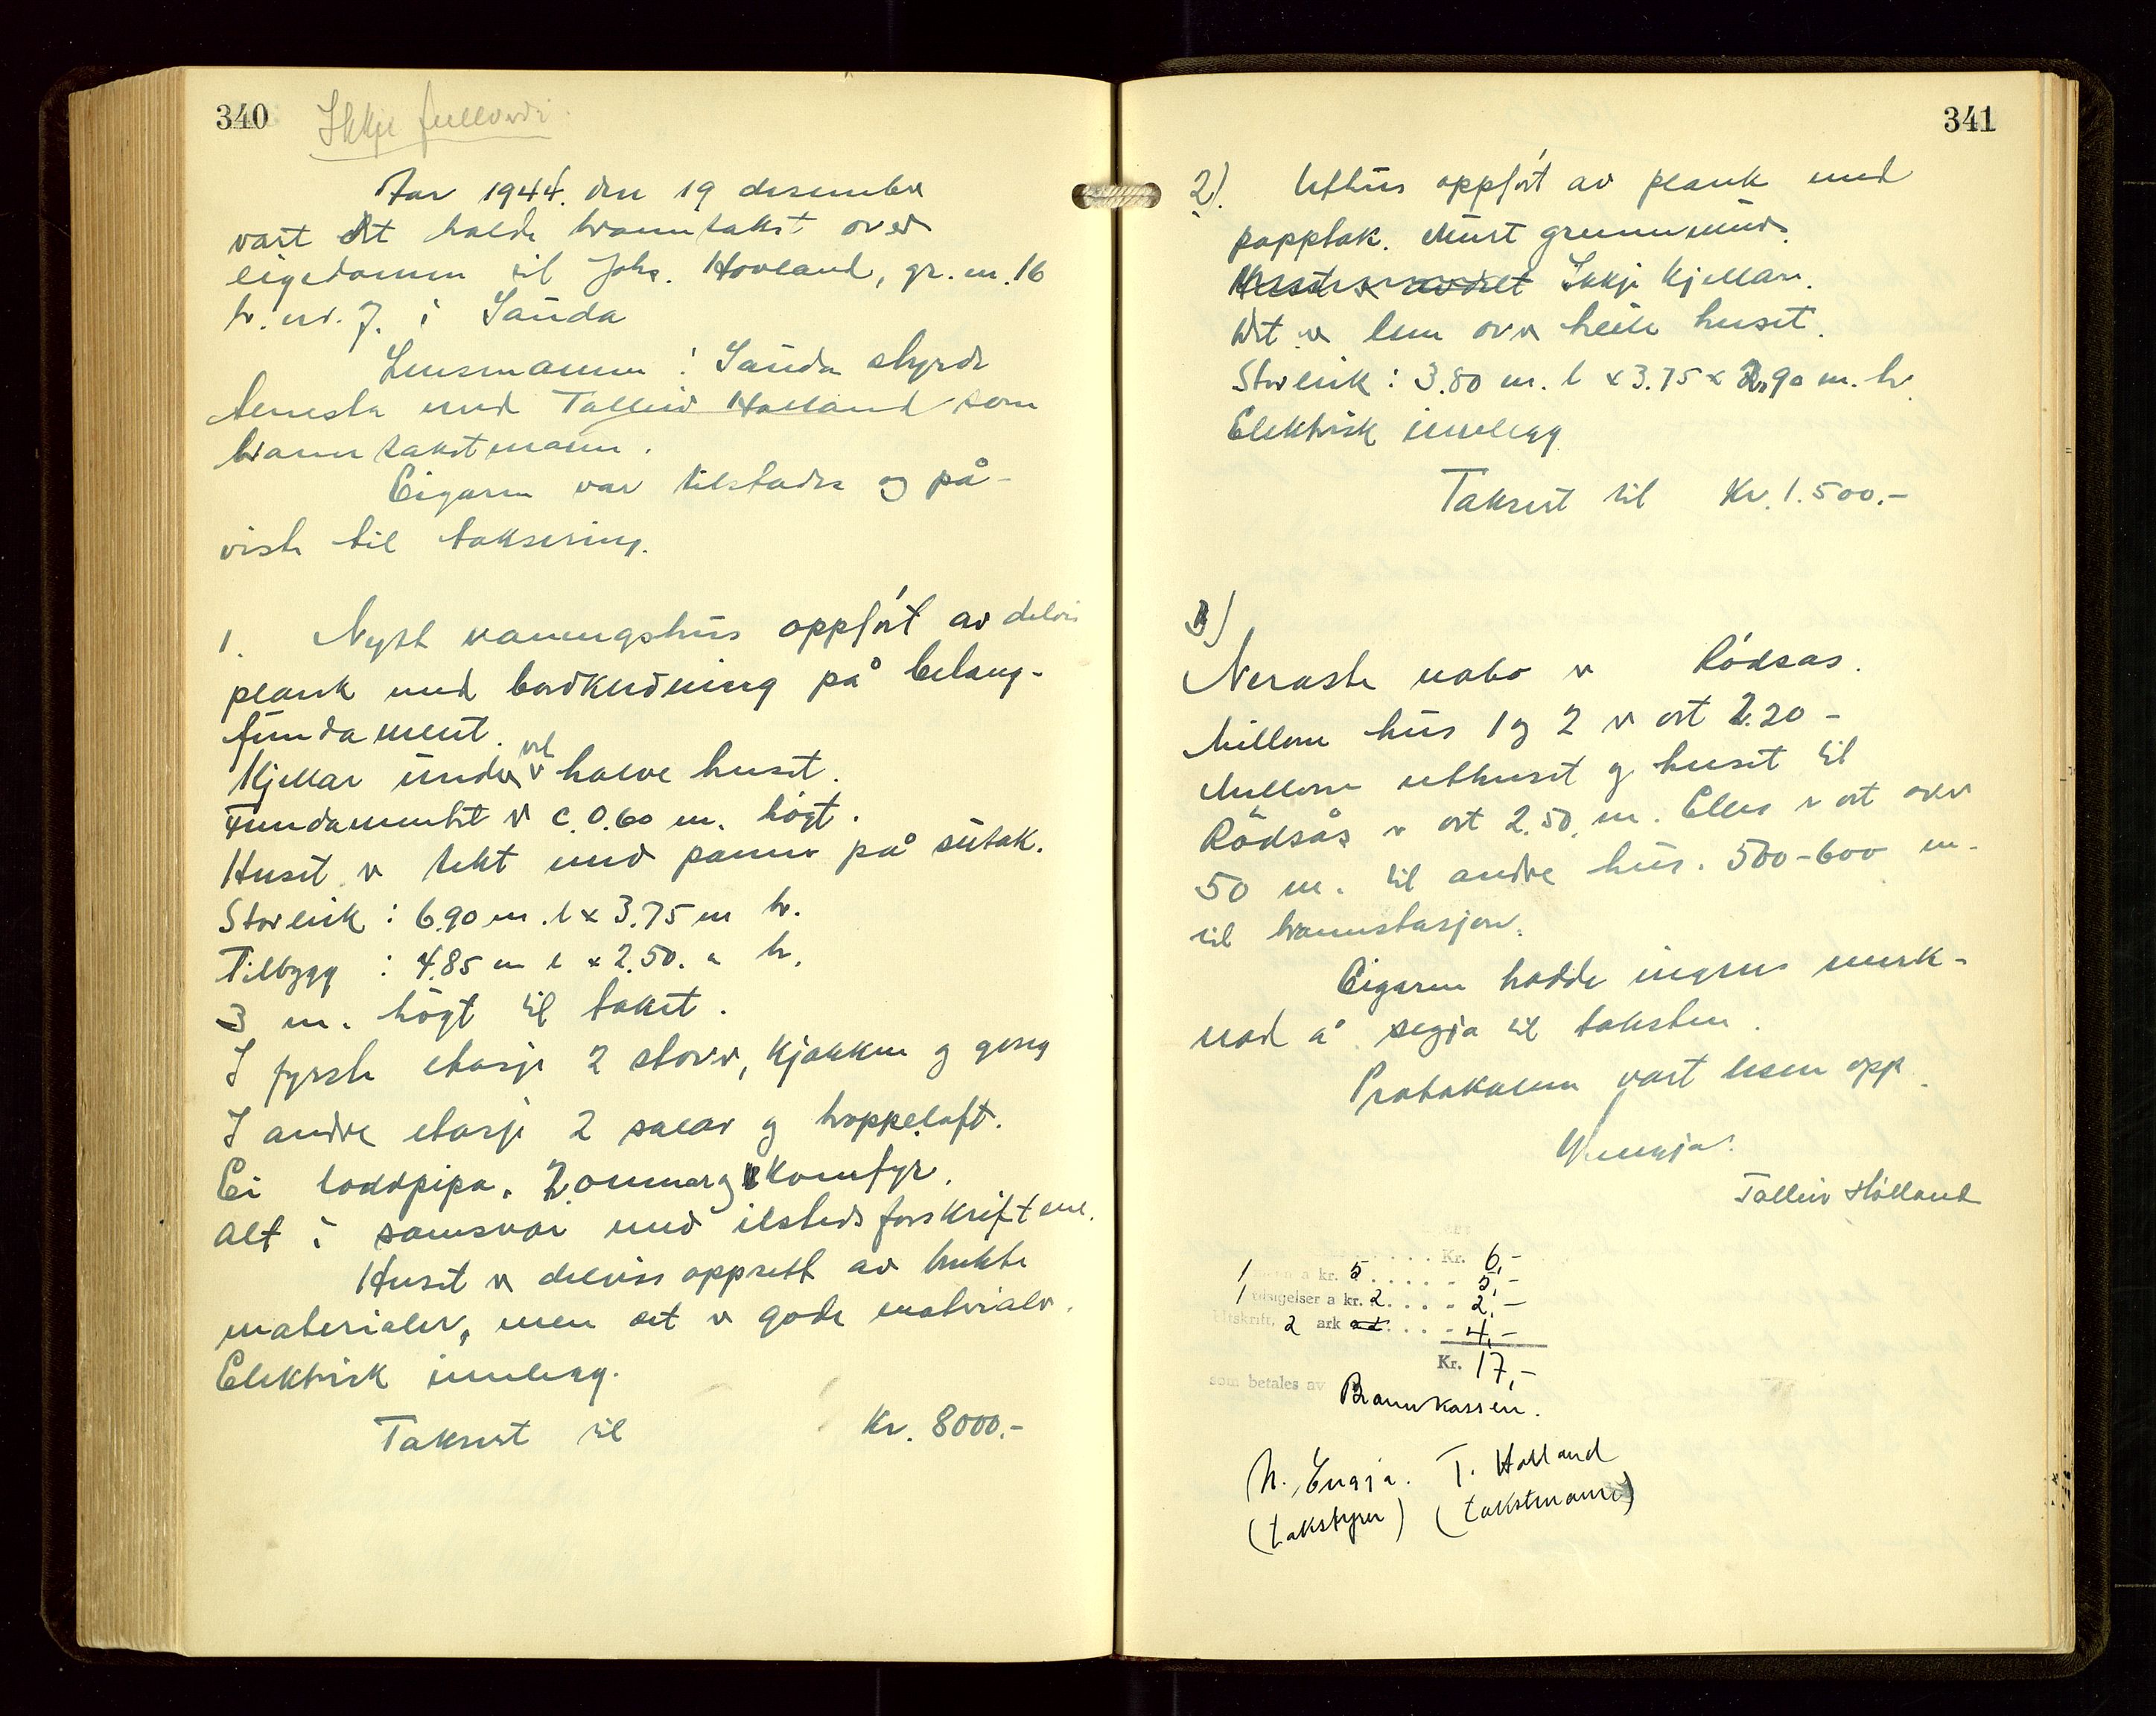 340
Ikkje fullverdi
Aar 1944. den 19 desember
vart det halde branntakst over
eigedomen til Johs. Hovland, gr. nr. 16
br. nr. 7. i Sauda
Lensmannen i Sauda styrde
tenesta med Talleiv Halland som
branntakstmann.
Eigaren var tilstades og på-
viste til taksering.
1. Nytt vaaningshus oppført av delvis
plank med bordkledning på betong-
fundament.
Kjellar under vel halve huset.
Fundamentet er c. 0.60 m. høgt.
Huset er tekt med panner på sutak.
Storleik: 6.90 m. l x 3.75 m br.
Tilbygg : 4.85 m l x 2.50. " br.
3 m. høgt til taket.
I fyrste etasje 2 stover, kjøkken og gang
I andre etasje 2 salar og trappeloft.
Ei loddpipa. 2 omnar og komfyr.
Alt i samsvar med ilstedsforskriftene.
Huset er delviss oppsett av brukte
materialer, men det er gode materialer.
Elektrisk innlegg.
Taksert til Kr. 8000.-
341
2). Uthus oppført av plank med
papptak. Murt grunnmur.
Ikkje kjellar.
Det er lem over heile huset.
Storleik: 3.80 m. l x 3.75 x 2.90 m. br.
Elektrisk innlegg
Taksert til Kr. 1.500.-
3)
Neraste nabo er Rødsås.
Millom hus 1 og 2 er det 2.20 -
Millom uthuset og huset til
Rødsås er det 2.50. m. Elles er det over
50 m. til andre hus. 500-600 m.
til brannstasjon.
Eigaren hadde ingen merk-
nad å segja til taksten.
Protokollen vart lesen opp.
N. Engja.
Talleiv Halland
Kr. 6,-
1 a kr. 5 .... - 5,-
1 tilsigelser a kr. 2 .... - 2.-
Utskrift, 2 ark .... - 4,-
Kr. 17,-
som betales av Brannkassen.
N. Engja. T. Halland
(takstyrer) (takstmann)